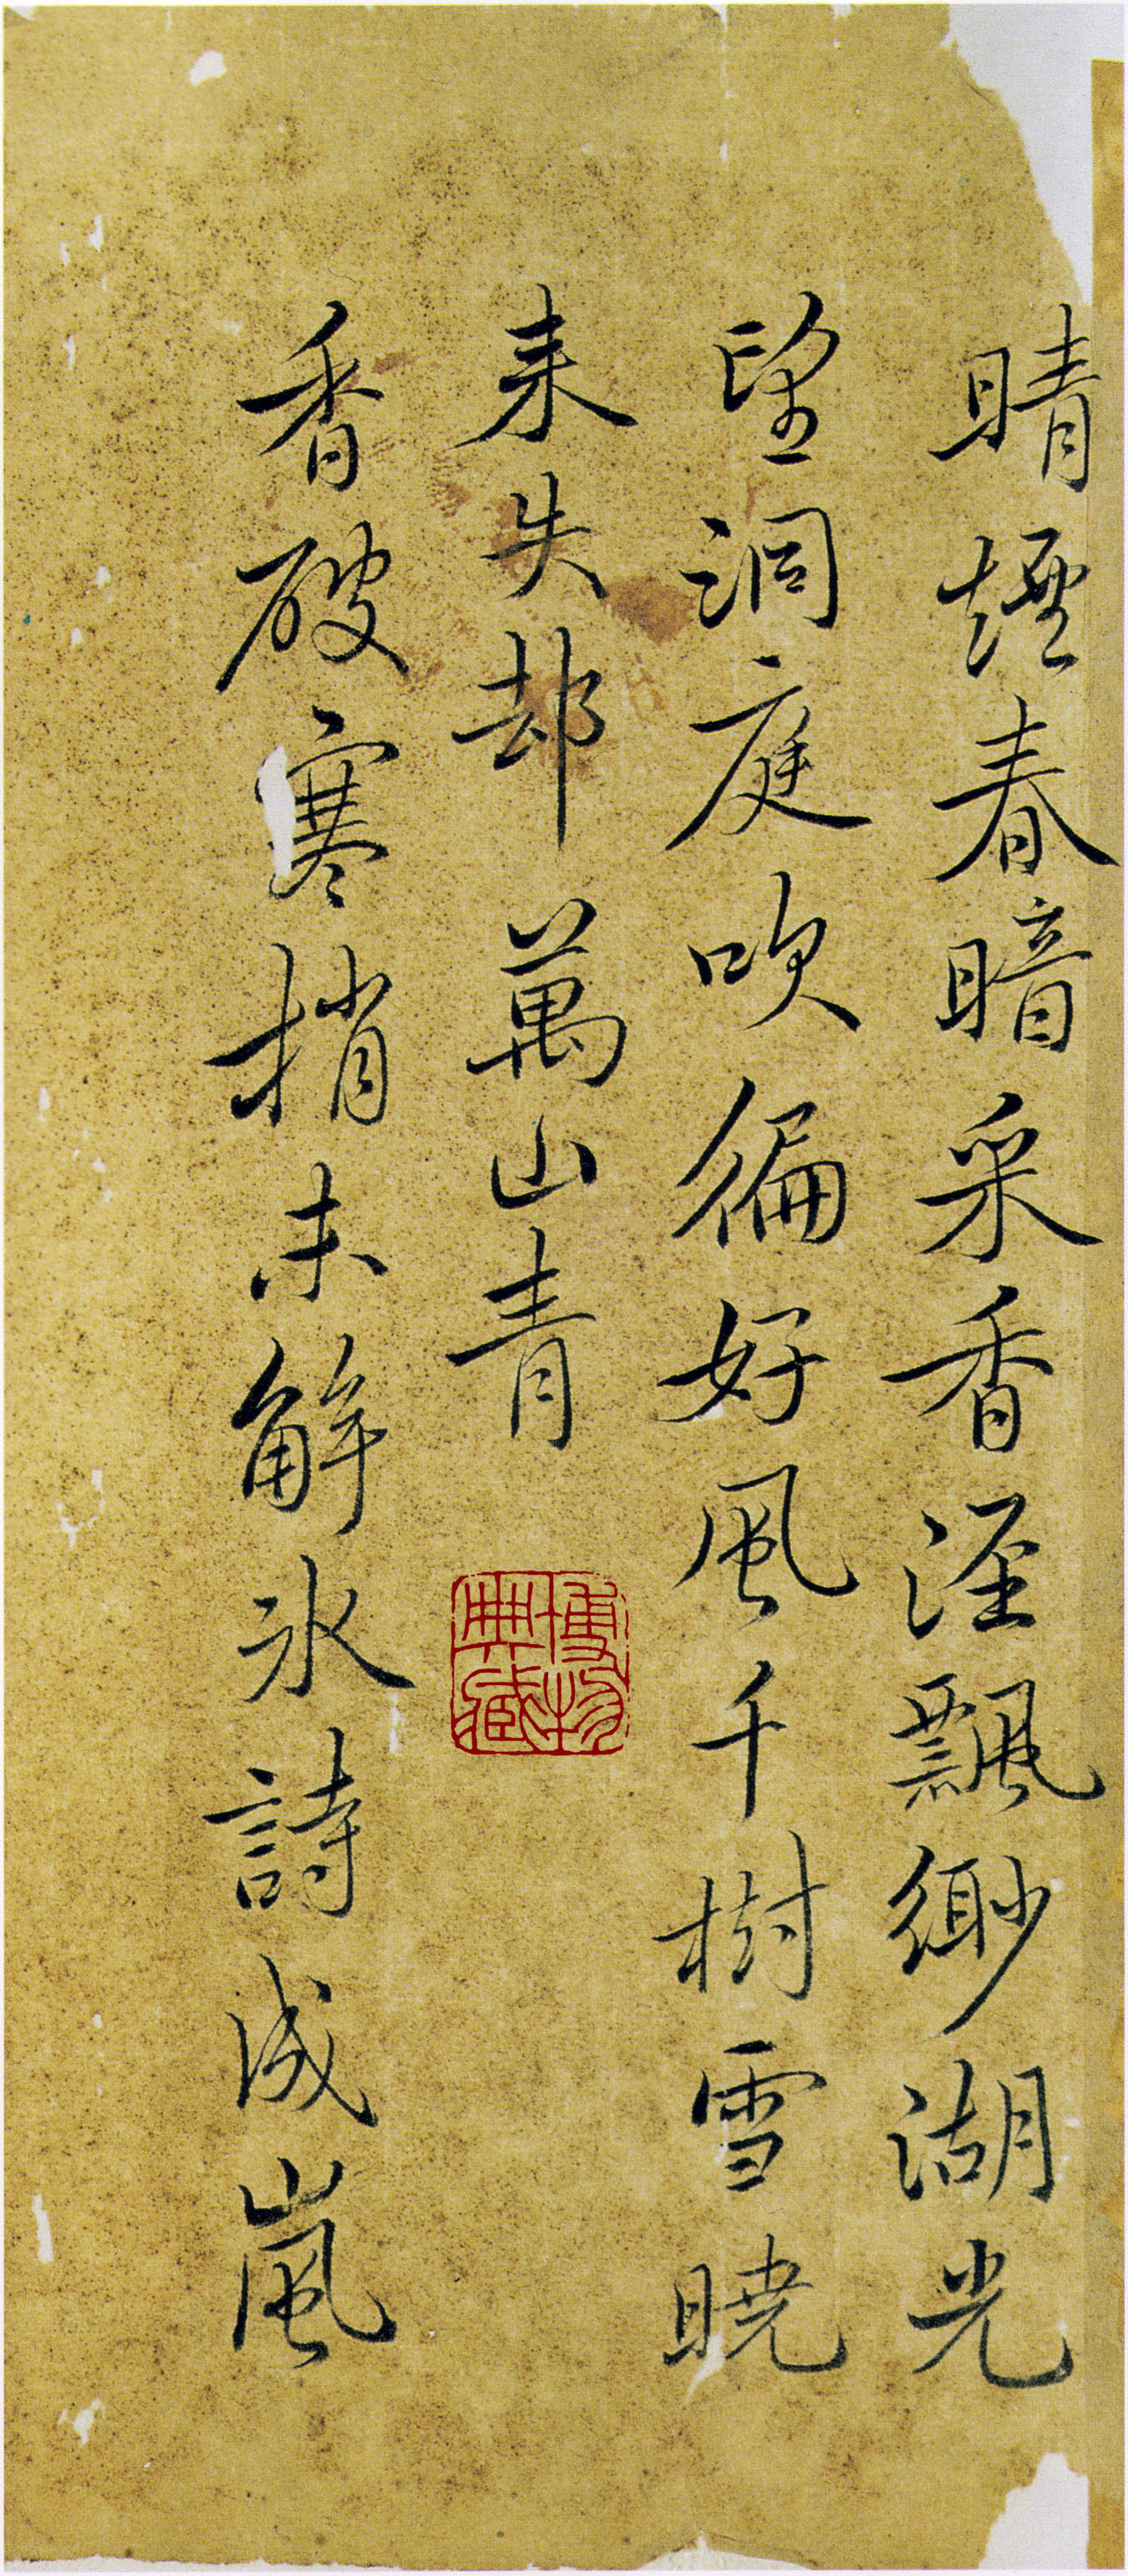 晴煙春暗采香涇飄緲湖光
望洞庭吹徧好風千樹雪曉
来失却萬山青
香破寒梢未解冰詩成嵐
博物
典藏